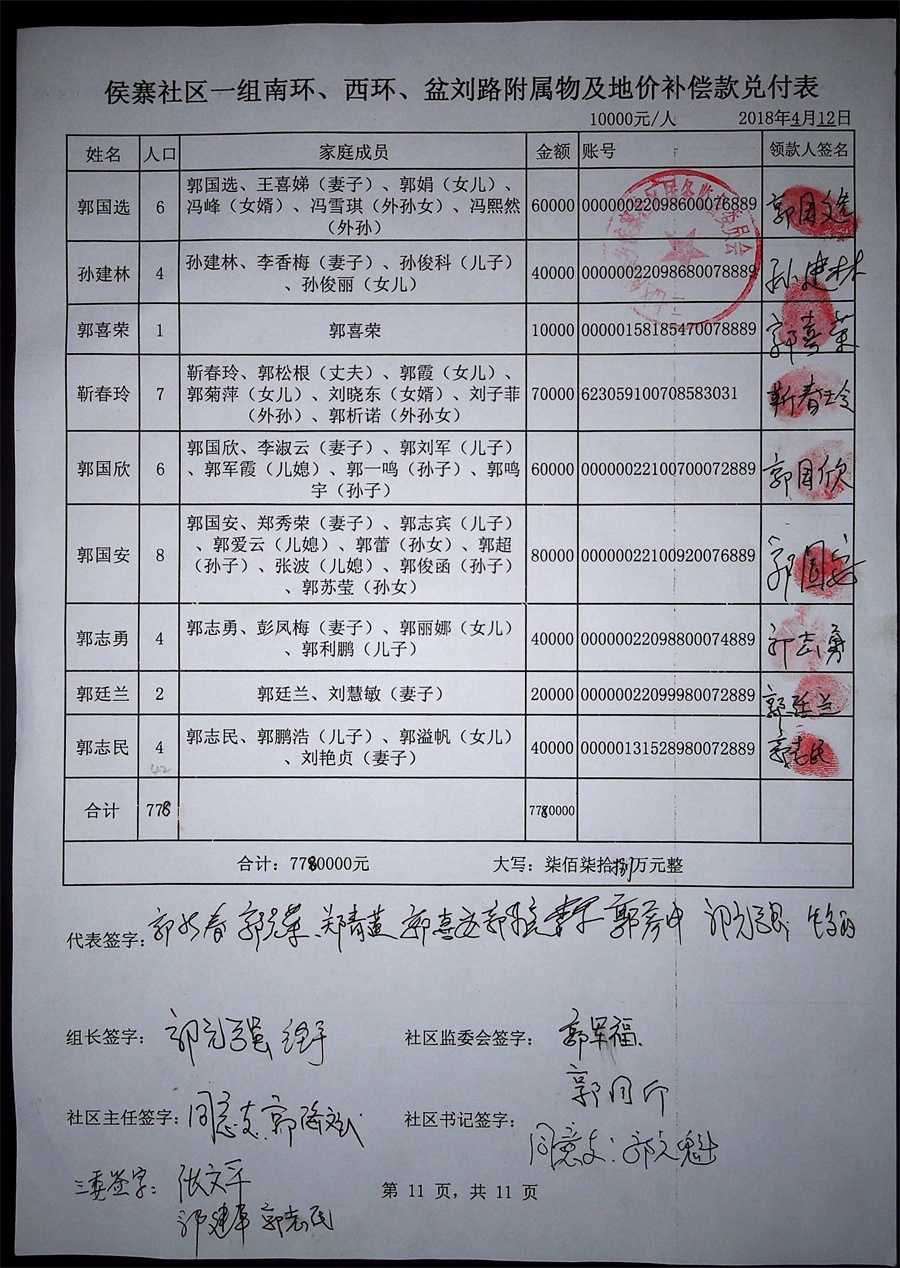 侯寨社区一组南环、西环、盆刘路附属物及地价补偿款兑付表
10000元/人 2018年4月12日
姓名 人口 家庭成员 金额 账号 领款人签名
郭国选 6 郭国选、王喜娣（妻子）、郭娟（女儿）、 60000 00000022098600076889 郭国选
冯峰（女婿）、冯雪琪（外孙女）、冯熙然
（外孙）
孙建林 4 孙建林、李香梅（妻子）、孙俊科（儿子） 40000 00000022098680078889 孙建林
、孙俊丽（女儿）
郭喜荣 1 郭喜荣 10000 00000158185470078889 郭喜荣
靳春玲 7 靳春玲、郭松根（丈夫）、郭霞（女儿）、 70000 623059100708583031 靳春玲
郭菊萍（女儿）、刘晓东（女婿）、刘子菲
（外孙）、郭析诺（外孙女）
郭国欣 6 郭国欣、李淑云（妻子）、郭刘军（儿子） 60000 00000022100700072889 郭国欣
、郭军霞（儿媳）、郭一鸣（孙子）、郭鸣
宇（孙子）
郭国安 8 郭国安、郑秀荣（妻子）、郭志宾（儿子） 80000 00000022100920076889 郭国安
、郭爱云（儿媳）、郭蕾（孙女）、郭超
（孙子）、张波（儿媳）、郭俊函（孙子）
、郭苏莹（孙女）
郭志勇 4 郭志勇、彭凤梅（妻子）、郭丽娜（女儿） 40000 00000022098800074889 郭志勇
、郭利鹏（儿子）
郭廷兰 2 郭廷兰、刘慧敏（妻子） 20000 00000022099980072889 郭廷兰
郭志民 4 郭志民、郭鹏浩（儿子）、郭溢帆（女儿） 40000 00000131528980072889 郭志民
、刘艳贞（妻子）
42
合计 778 7780000
合计：7780000元 大写：柒佰柒拾捌万元整
代表签字：
组长签字： 社区监委会签字： 郭军福
社区主任签字：同意支 社区书记签字：
同意支：郭元魁
三委签字：张文平
郭建军 郭志民
第 11 页，共 11 页